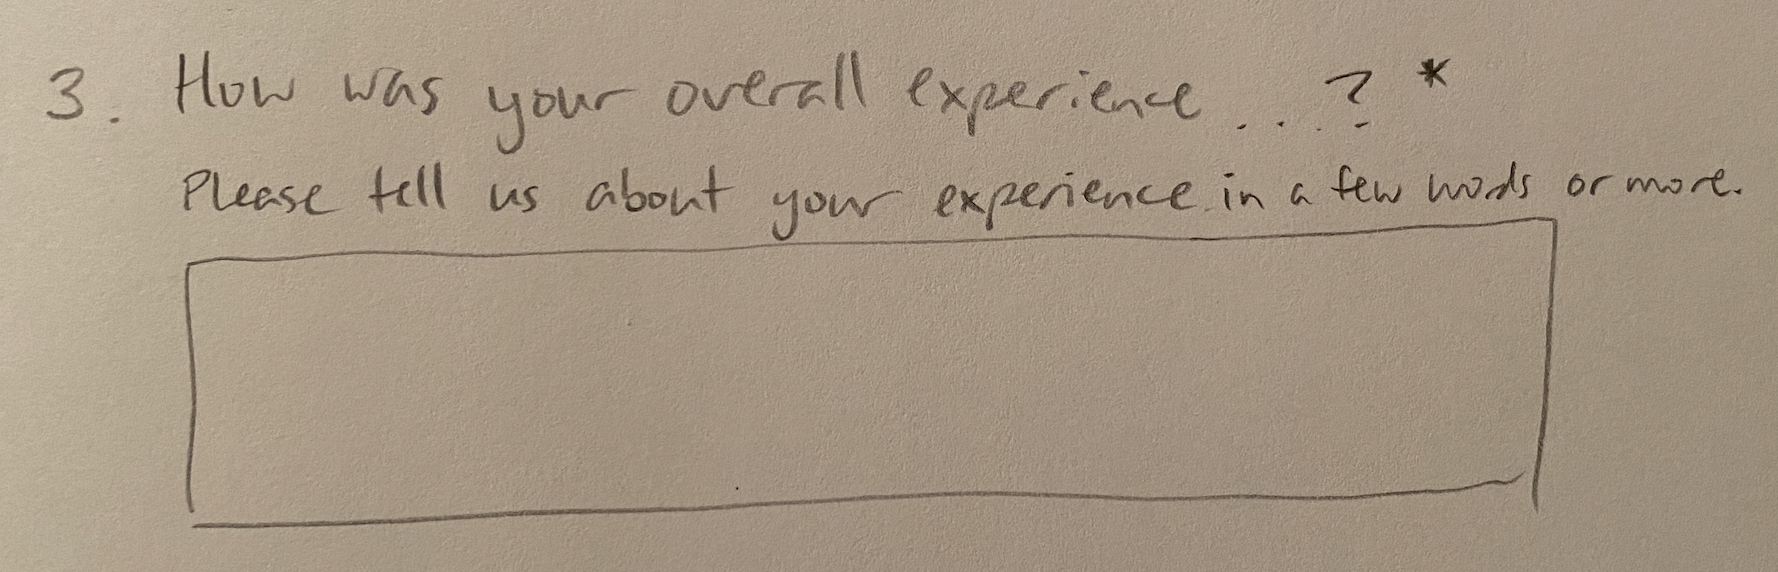 3. How was your overall experience ...? *
Please tell us about your experience in a few words or more.